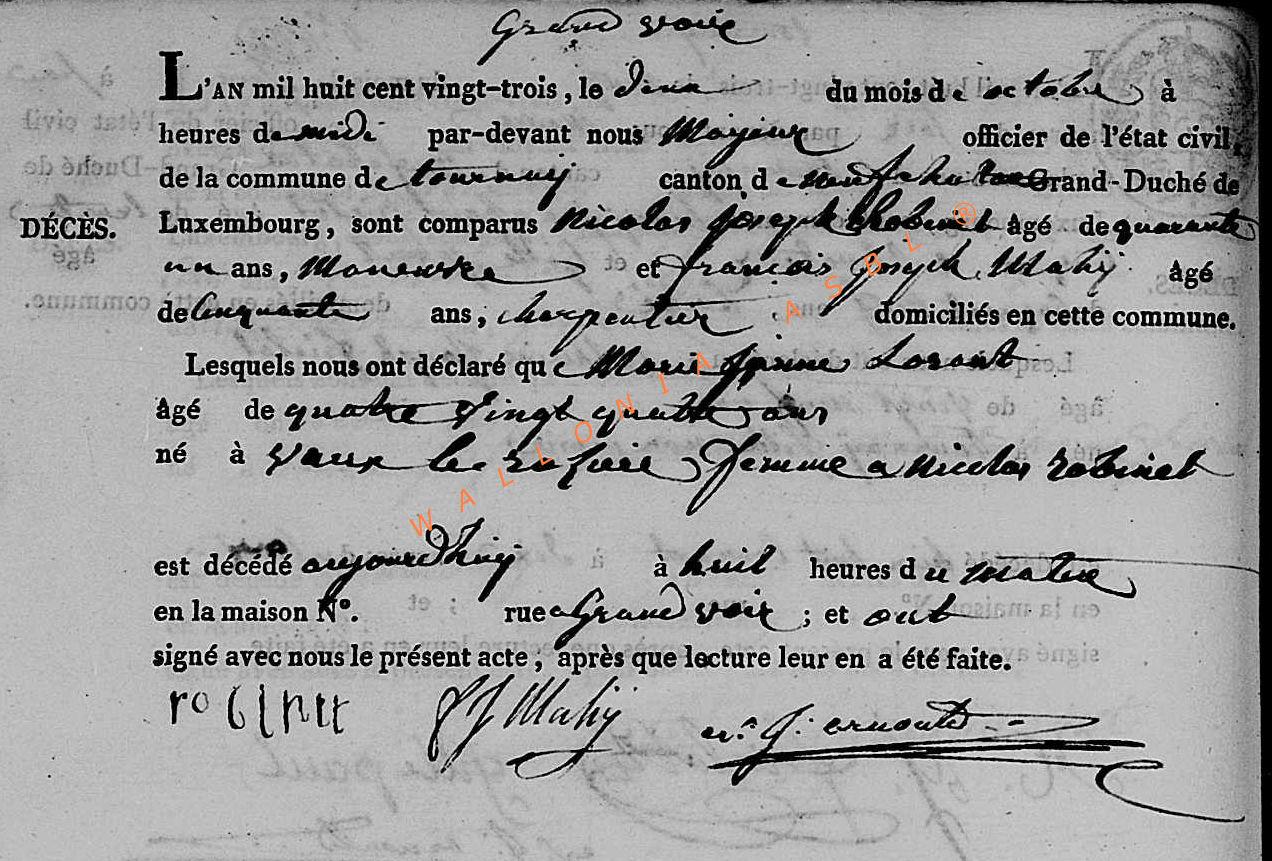 Grand voir
L'AN mil huit cent vingt-trois, le deux du mois de octobre à
heures de midi par-devant nous Mayeur officier de l'état civil,
de la commune de tournay canton de neufchateau Grand-Duché de
DÉCÈS. Luxembourg, sont comparus Nicolas joseph Robinet âgé de quarante
un ans, et françois Joseph Mahy âgé
de Cinquante ans, charpentier domiciliés en cette commune.
Lesquels nous ont déclaré que Marie Lorant
âgé de quatre vingt quatre ans
né à vaux femme a nicolas robinet
est décédé aujourdhuy à huit heures du matin
en la maison N°. rue a Grand voir ; et ont
signé avec nous le présent acte, après que lecture leur en a été faite.
robinet f J Mahy J. arnould
WALLONIA ASBL ®